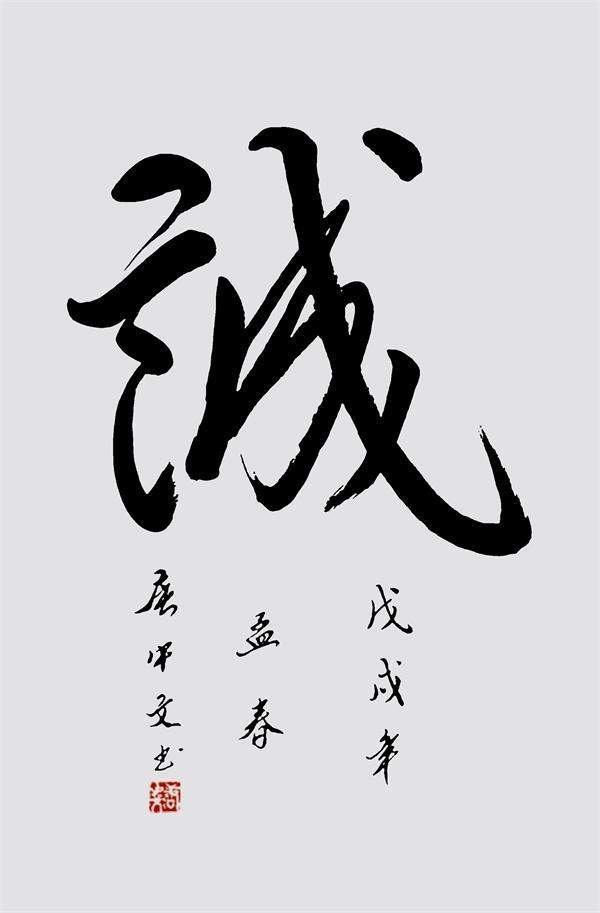 誠
戊戌年
孟春
展中文书